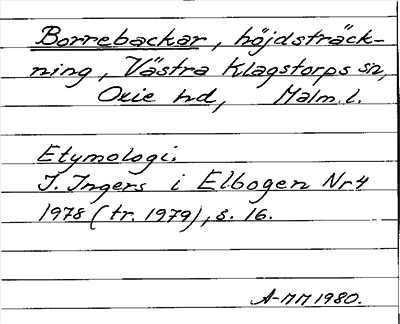 Borrebackar, höjdsträck-
ning, Västra Klagstorps sn,
Oxie hd, Malm. l.
Etymologi:
I. Ingers i Elbogen Nr 4
1978 (tr. 1979), s. 16.
A-MM 1980.